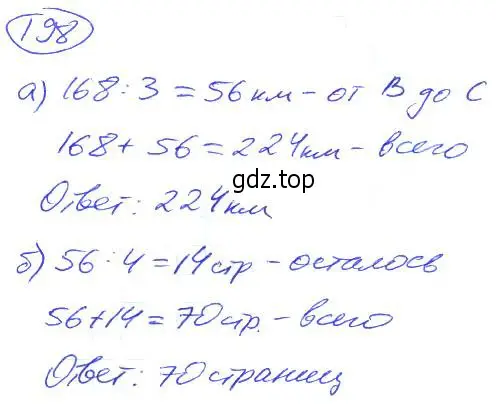 198
а) 168 : 3 = 56 км - от В до С
168 + 56 = 224 км - всего
gdz.top
Ответ: 224 км
б) 56 : 4 = 14 стр - осталось
56 + 14 = 70 стр. - всего
Ответ: 70 страниц